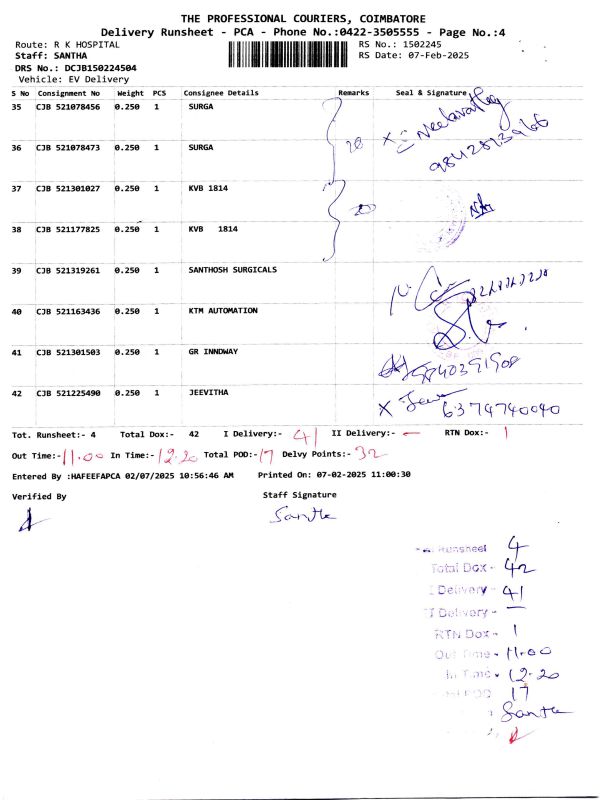 THE PROFESSIONAL COURIERS, COIMBATORE
Delivery Runsheet - PCA - Phone No.:0422-3505555 - Page No.:4
Route: R K HOSPITAL RS No.: 1502245
Staff: SANTHA RS Date: 07-Feb-2025
DRS No.: DCJB150224504
Vehicle: EV Delivery
S No Consignment No Weight PCS Consignee Details Remarks Seal & Signature
35 CJB 521078456 0.250 1 SURGA
36 CJB 521078473 0.250 1 SURGA 20
37 CJB 521301027 0.250 1 KVB 1814
20
38 CJB 521177825 0.250 1 KVB 1814
39 CJB 521319261 0.250 1 SANTHOSH SURGICALS
40 CJB 521163436 0.250 1 KTM AUTOMATION
41 CJB 521301503 0.250 1 GR INNDWAY
42 CJB 521225490 0.250 1 JEEVITHA 6374740040
Tot. Runsheet:- 4 Total Dox:- 42 I Delivery:- 41 II Delivery:- — RTN Dox:- 1
Out Time:- 11.00 In Time:- 12.20 Total POD:- 17 Delvy Points:- 32
Entered By :HAFEEFAPCA 02/07/2025 10:56:46 AM Printed On: 07-02-2025 11:00:30
Verified By Staff Signature
Santha
Runsheet 4
Total Dox - 42
I Delivery - 41
II Delivery - —
RTN Dox - 1
Out Time - 11.00
In Time - 12.20
POD 17
Santha